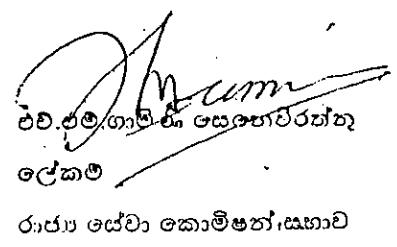 එච්.එම්.ගාමිණී සෙනෙවිරත්න
ලේකම්
රාජ්‍ය සේවා කොමිෂන් සභාව